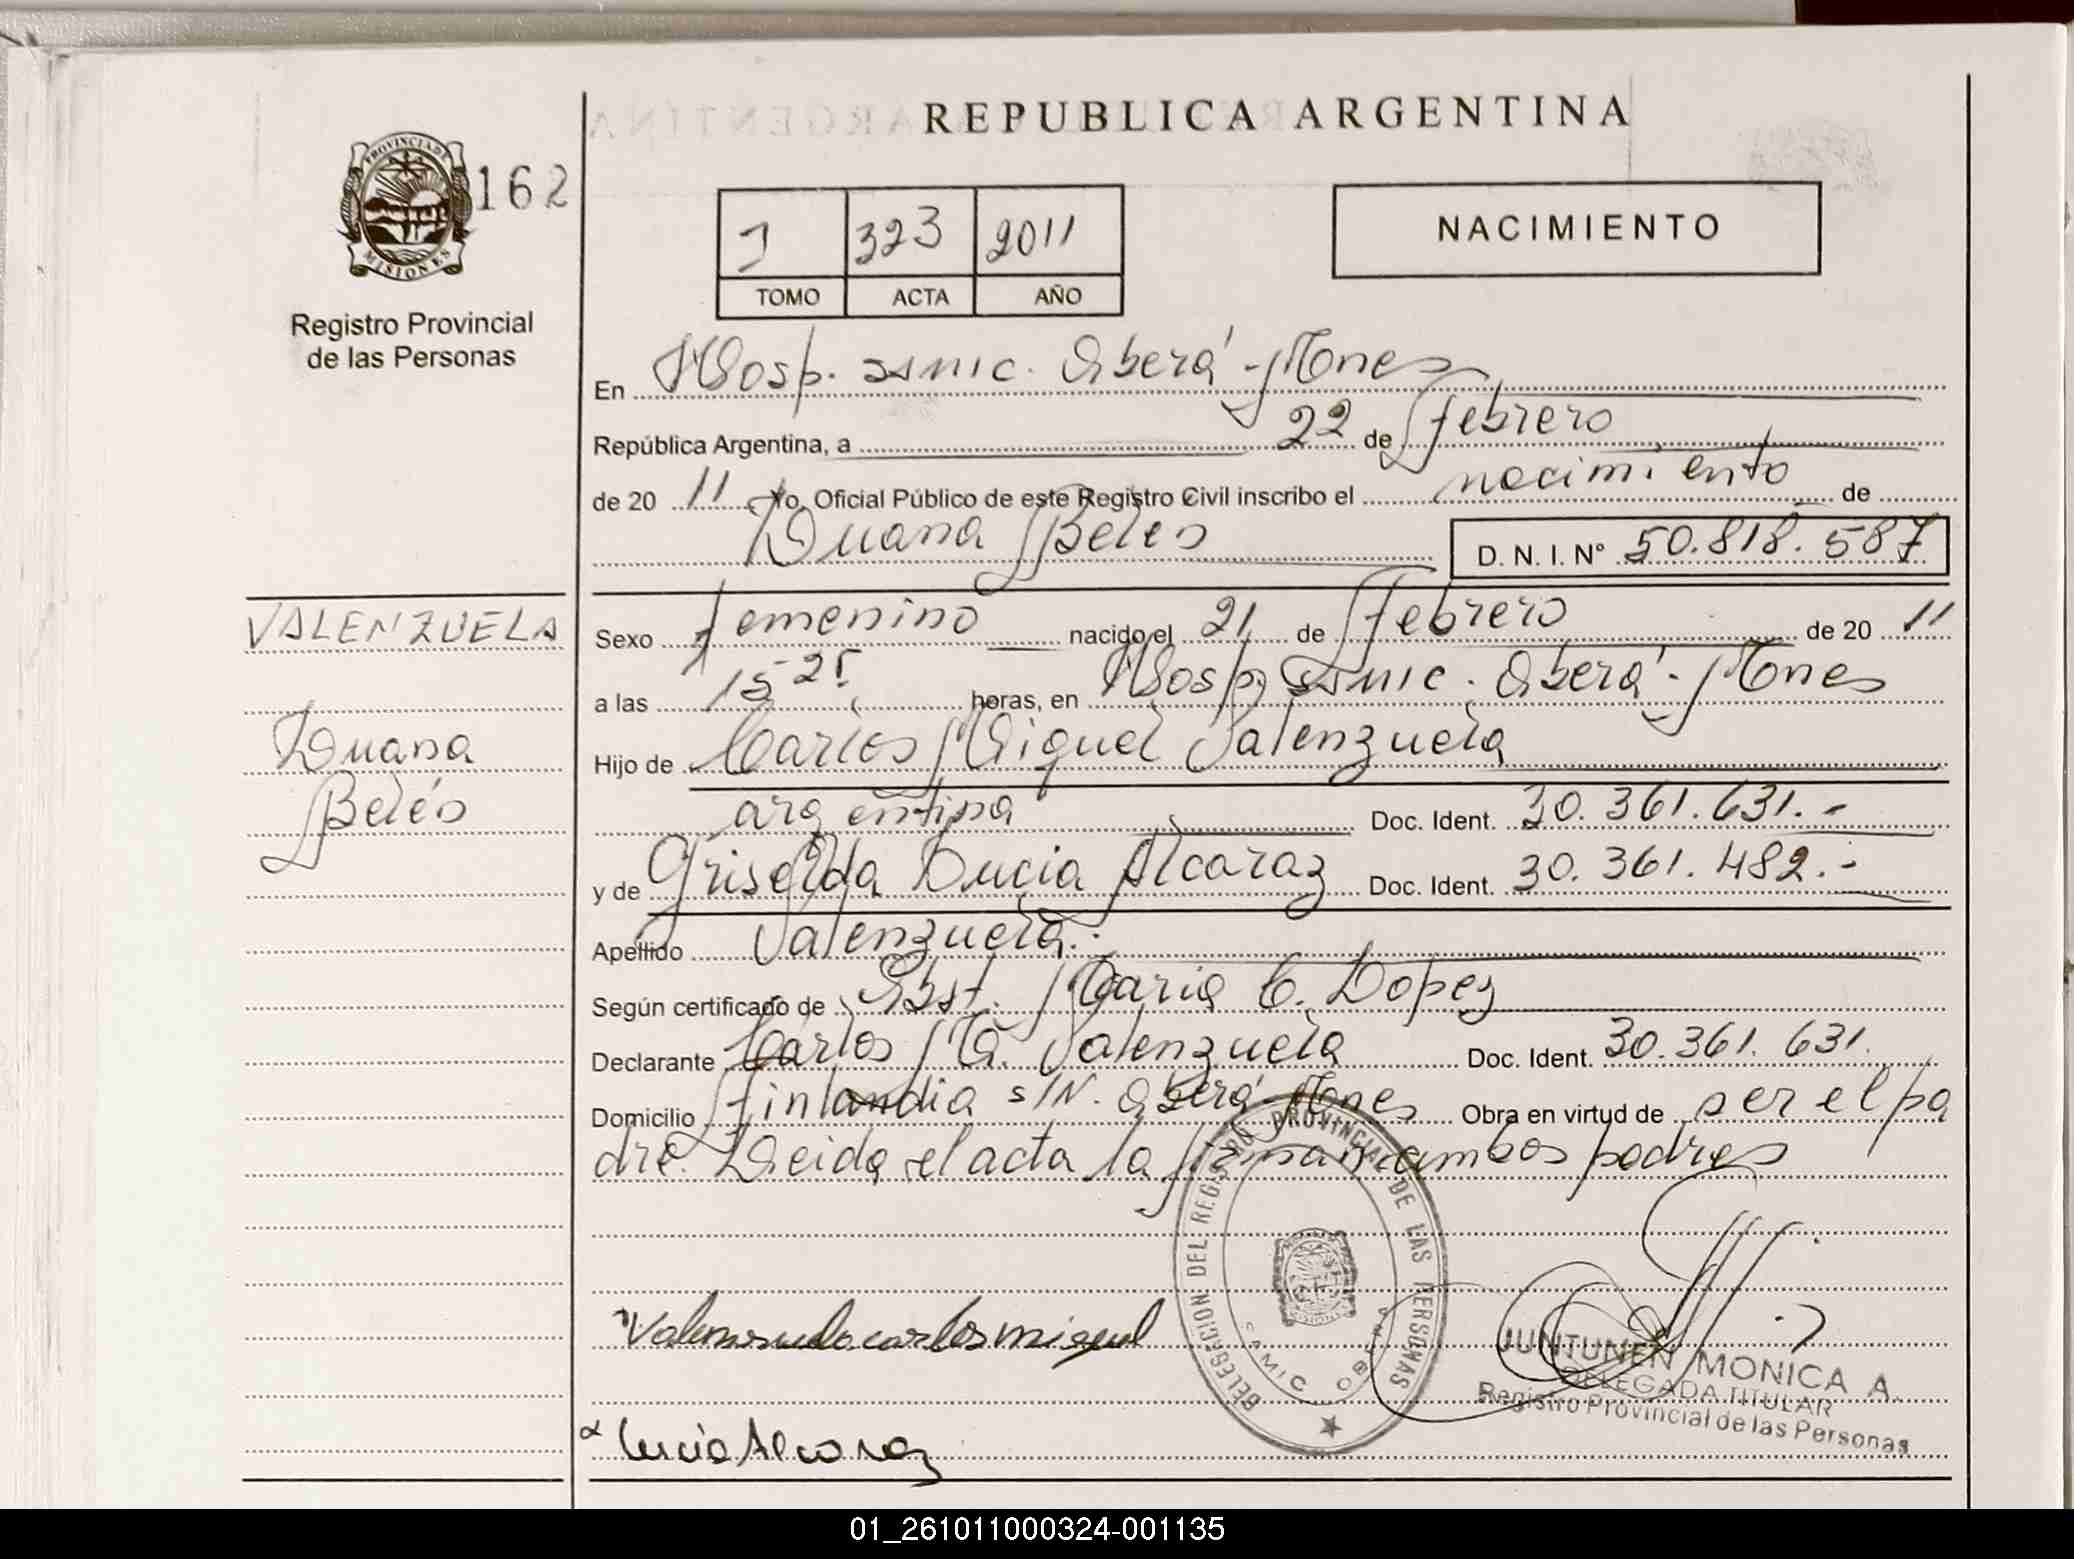 REPUBLICA ARGENTINA
PROVINCIA DE
MISIONES
162
Registro Provincial
de las Personas
1 323 2011
TOMO ACTA AÑO
NACIMIENTO
En Hosp. Samic. Oberá - Mnes
República Argentina, a 22 de febrero
de 20 11 Yo, Oficial Público de este Registro Civil inscribo el nacimiento de
Luana Belén
D. N. I. N° 50.818.587
VALENZUELA
Luana
Belén
Sexo femenino nacido el 21 de febrero de 20 11
a las 15 25 horas, en Hosp. Samic. Oberá - Mnes
Hijo de Carlos Miguel Valenzuela
argentina Doc. Ident. 30.361.631.-
y de Griselda Lucia Alcaraz Doc. Ident. 30.361.482.-
Apellido Valenzuela.
Según certificado de Obst. Maria C. Lopez
Declarante Carlos M. Valenzuela Doc. Ident. 30.361.631.
Domicilio Finlandia s/N. Oberá - Mnes Obra en virtud de ser el pa
dre. Leida el acta la firman ambos padres
DELEGACION DEL REGISTRO PROVINCIAL DE LAS PERSONAS
SAMIC OBERA
Valenzuela carlos miguel
Lucia Alcaraz
JUNTUNEN MONICA A.
DELEGADA TITULAR
Registro Provincial de las Personas
01_261011000324-001135